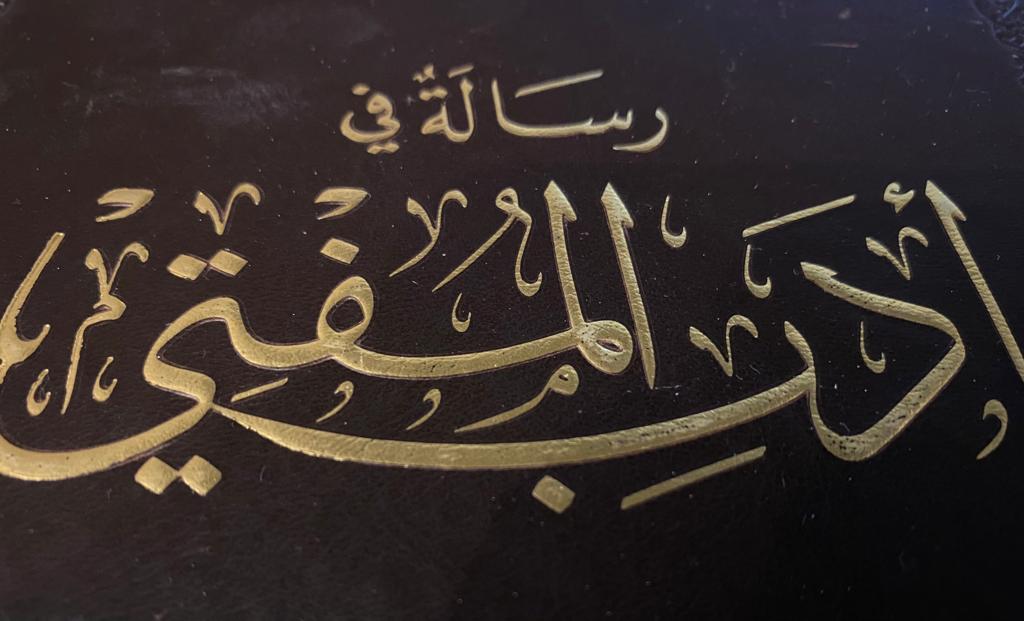 رسالةٌ في
أَدَبِ المُفْتِيْ